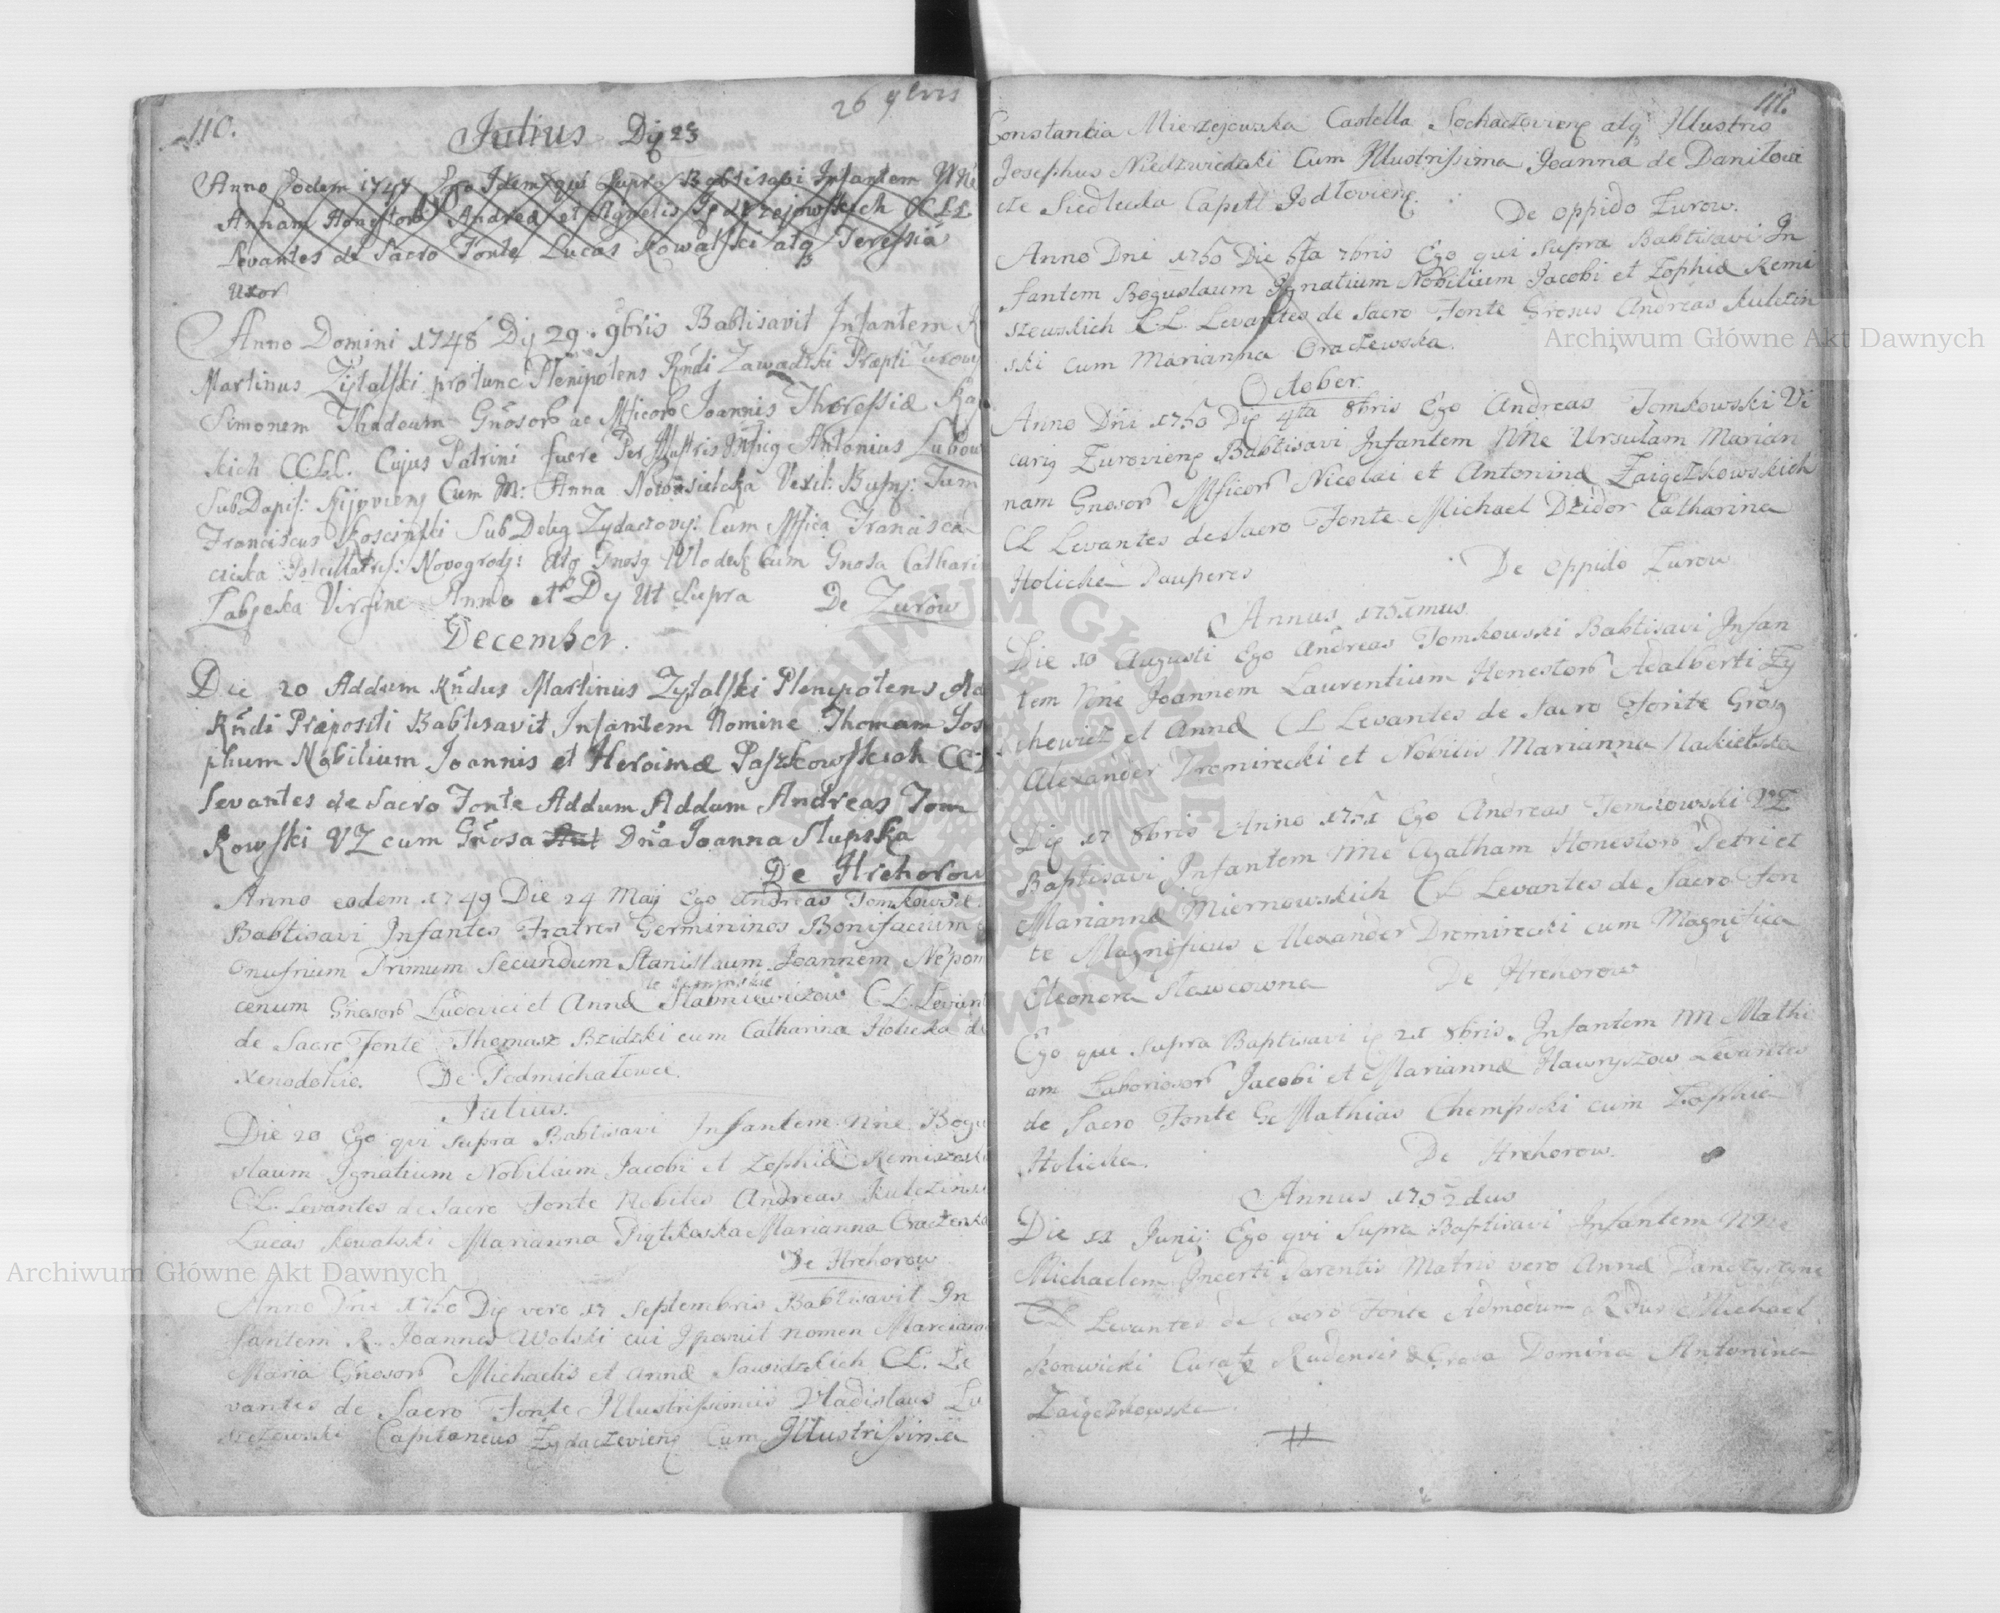 110.
26 9bris
Julius Dij 23
Anno Eodem 1747 Ego Idem qui Supra Babtisavi Infantem Nne
Annam Honestor Andreæ et Agnetis Jędrzejowskich CCLL
Levantes de Sacro Fonte Lucas Kowalski atq Teressia
Uxor
Anno Domini 1748 Dij 29. 9bris Babtisavit Infantem
Martinus Zytalski protunc Plenipotens Rndi Zawadzki Præpti Zurow
Simonem Thadeum Gnosor ac Mficor Joannis Theressiæ
skich CCLL. Cujus Patrini fuere Per Illustris Mficq Antonius Lubow
SubDapif: Kijoviens Cum M: Anna Nowosielska Vexil: Busns: Tum
Franciscus Koscinski SubDeleg Zydaczovs: Cum Mfica Francisca
Novogrods: Atq Gnosq Wlodek Cum Gnosa Cathari
Zabjeska Virgine Anno et Dij Ut Supra De Zurów
December.
Die 20 Addum Rndus Martinus Zytalski Plenipotens Ad
Rndi Præpositi Babtisavit Infantem Nomine Thomam Jos
phum Nobilium Joannis et Heroimæ Paszkowskich CCL
Levantes de Sacro Fonte Addum Addum Andreas Tom
kowski VZ cum Gnosa Dna Joanna Slupska
De Hrehorow
Anno eodem 1749 Die 24 Maij Ego Andreas Tomkowski
Babtisavi Infantes Fratres Germininos Bonifacium
Onufrium Primum Secundum Stanislaum Joannem Nepom
cenum Gnosor Ludovici et Annæ Stabniewiczow CL. Levant
de Sacro Fonte Thomasz Bzidzki cum Catharina Holicka de
Xenodohio. De Podmichałowce.
Julius.
Die 20 Ego qui supra Babtisavi Infantem Nne Bogu
slaum Ignatium Nobilium Jacobi et Zophiæ Remiszesk
CL. Levantes de Sacro Fonte Nobiles Andreas Kulezins
Lucas Kowalski Marianna Piątkoska Marianna Oraczeska
De Hrehorow
Anno Dni 1750 Dij vero 17 Septembris Babtisavit In
fantem R. Joannes Wolski cui Iposuit nomen Marciann
Maria Gnosor Michaelis et Annæ Sawidzkich CL. Le
vantes de Sacro Fonte Illustrissimus Vladislaus Lu
szczewski Capitaneus Zydaczeviens Cum Illustrissima
111.
Constantia Mierzejowska Castella Sochaczoviens atq Illustris
Josephus Niedzwiedzki Cum Illustrissima Joanna de Danilowi
cze Siedleska Capitt Jodłoviens.
De Oppido Zurow.
Anno Dni 1750 Die 6ta 7bris Ego qui supra Babtisavi In
fantem Boguslaum Ignatium Nobilium Jacobi et Zophiæ Remi
szewskich CL. Levantes de Sacro Fonte Gnosus Andreas Kulezin
ski cum Marianna Oraczewska.
October.
Anno Dni 1750 Dij 4ta 8bris Ego Andreas Tomkowski Vi
cariq Zuroviens Babtisavi Infantem Nne Ursulam Marian
nam Gnosor Mficor Nicolai et Antoninæ Zaięczkowskich
CL Levantes de Sacro Fonte Michael Dzidor Catharina
Holicka Pauperes
De Oppido Zurow
Annus 1751mus.
Die 10 Augusti Ego Andreas Tomkowski Babtisavi Infan
tem Nne Joannem Laurentium Honestor Adalberti Zy
chewicz et Annæ CL Levantes de Sacro Fonte Gnosq
Alexander Dromirecki et Nobilis Marianna Nakielska
Dij 17 8bris Anno 1751 Ego Andreas Temkowski VZ
Baptisavi Infantem Nne Agatham Honestor Petri et
Mariannæ Miernowskich CL Levantes de Sacro Fon
te Magnificus Alexander Dromirecki cum Magnifica
Eleonora Slawcowna De Hrehorow
Ego qui supra Baptisavi 21 8bris. Infantem NN Mathi
am Laboriosor Jacobi et Mariannæ Hawryszow Levantes
de Sacro Fonte Gs Mathias Chempski cum Zophia
Holicka. De Hrehorow.
Annus 1752dus
Die 11 Junij Ego qui Supra Baptisavi Infantem NNe
Michaelem Incerti Parentis Matris vero Annæ
CL Levantes de Sacro Fonte Admodum Rdus Michael
Curatq Rudensis & Gnosa Domina Antonina
Zaięczkowska.
Archiwum Główne Akt Dawnych
Archiwum Główne Akt Dawnych
ARCHIWUM GŁÓWNE AKT DAWNYCH